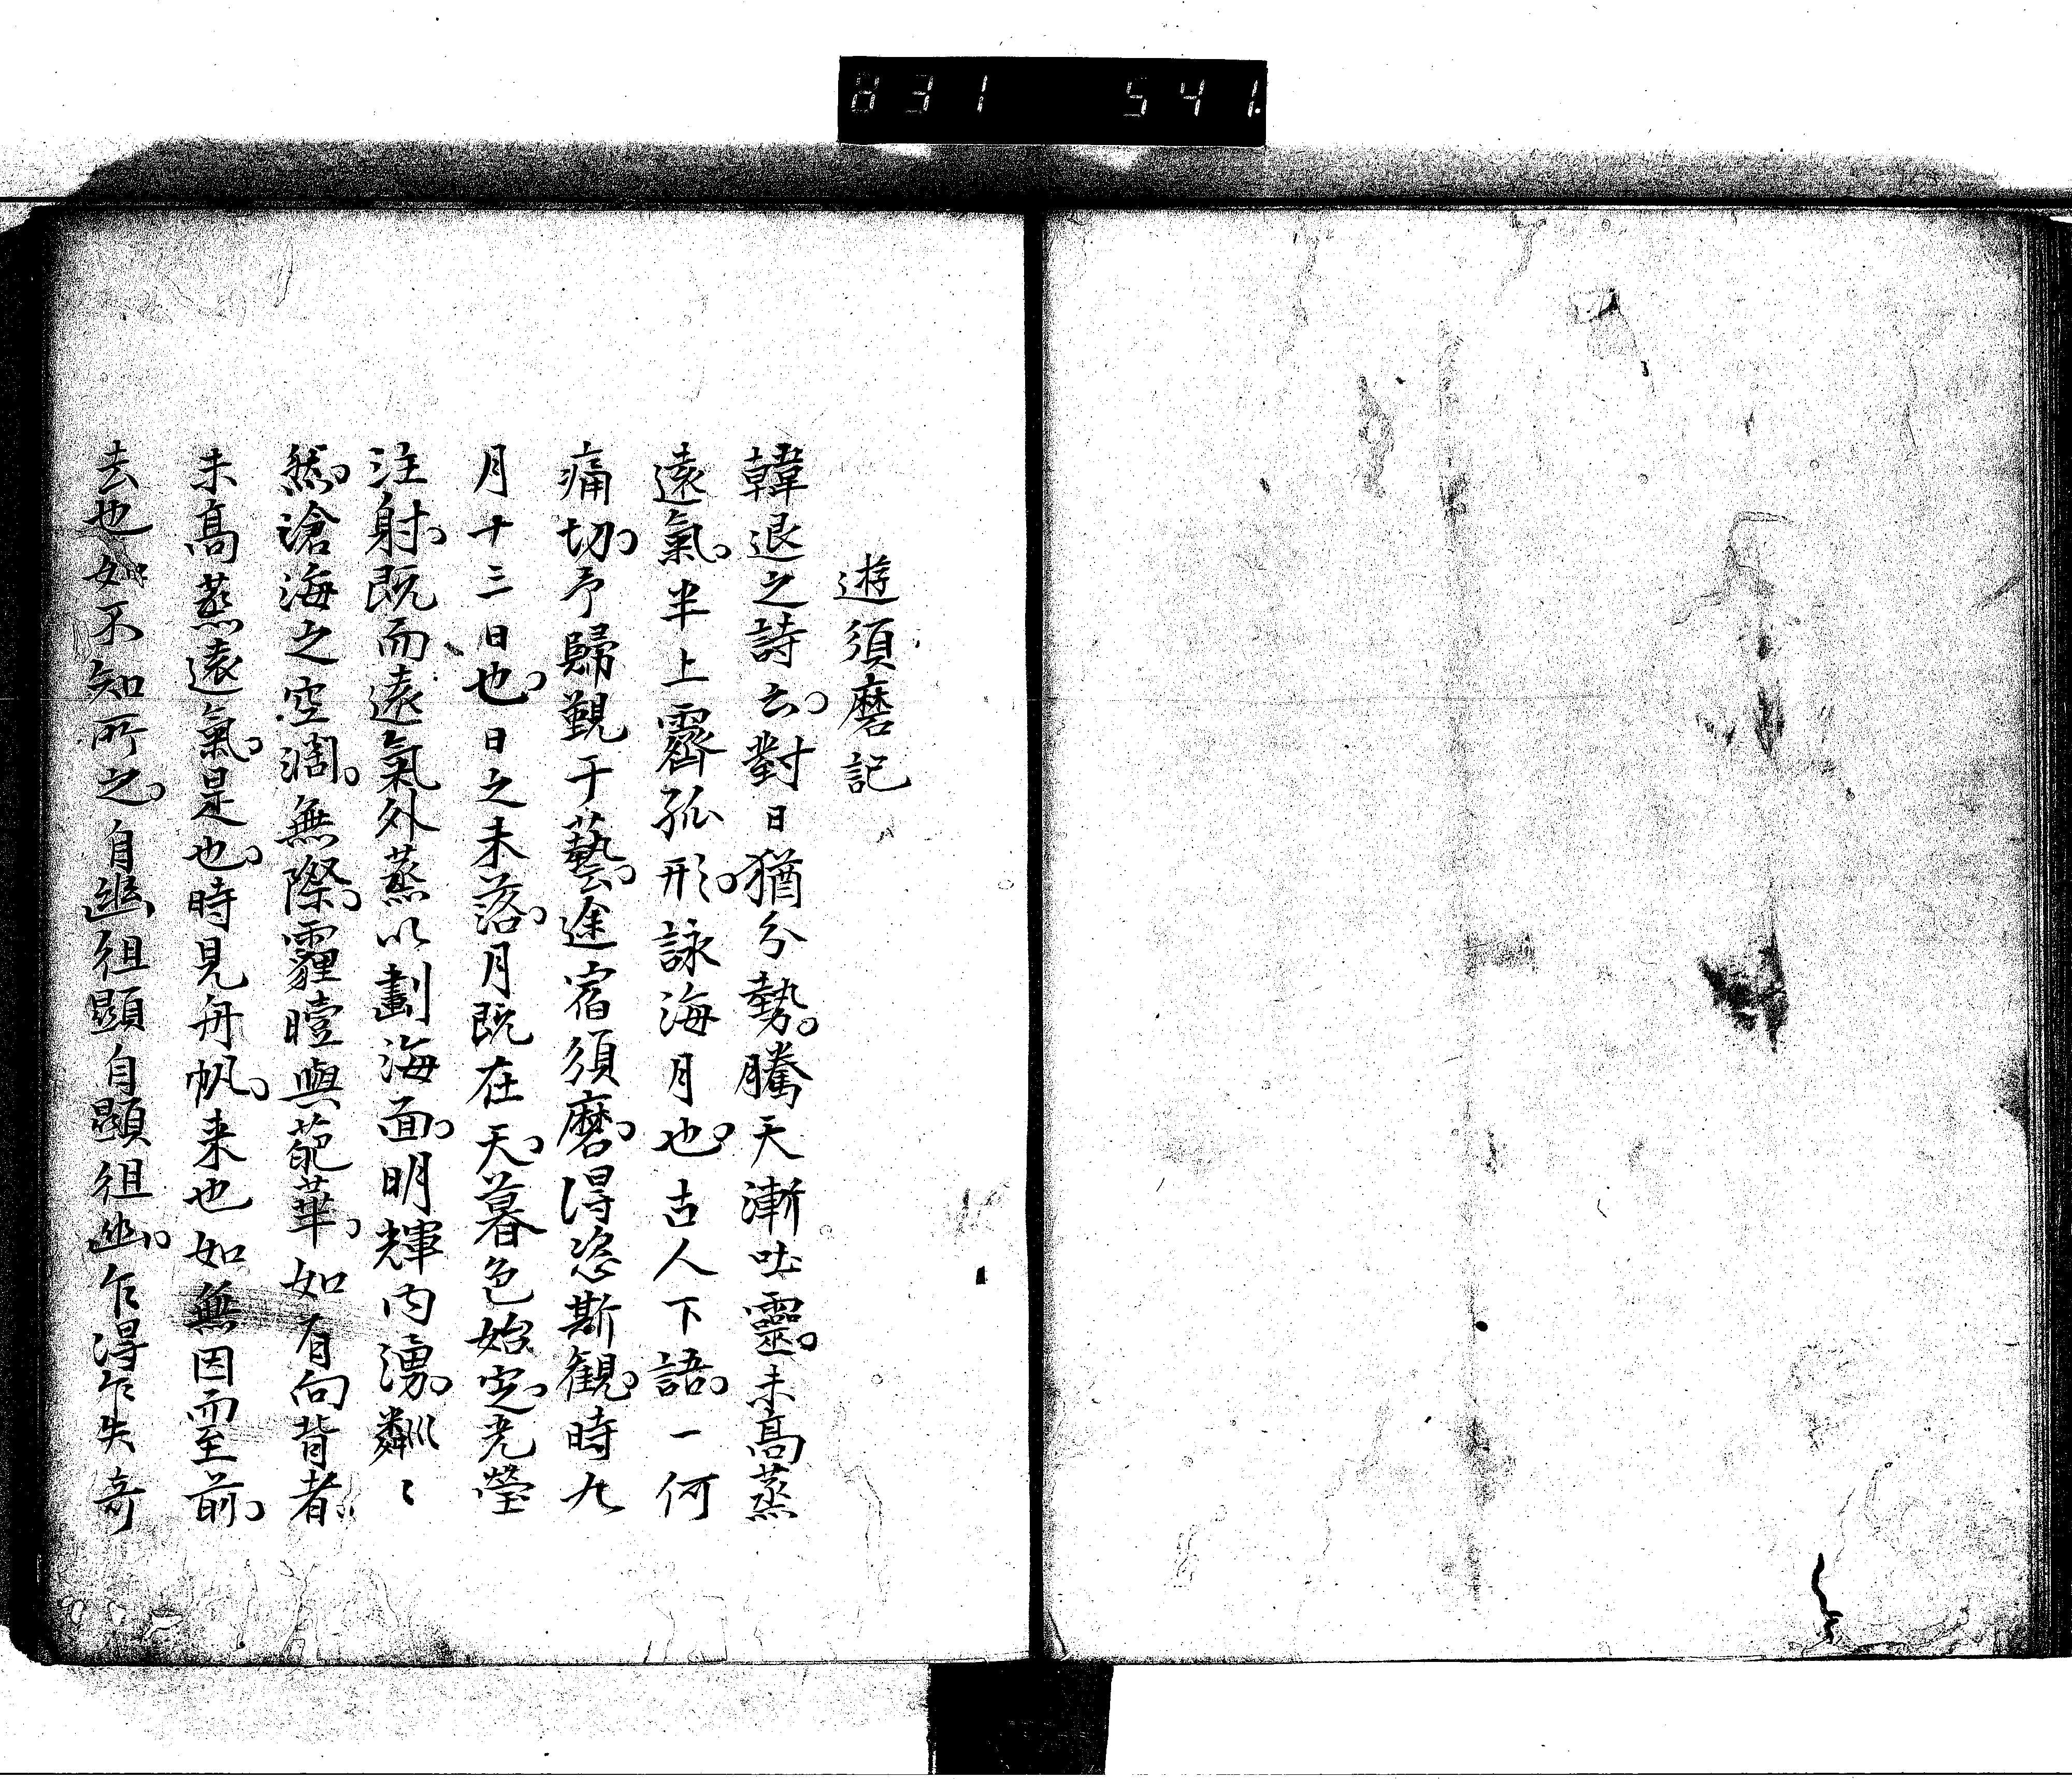 831 541.
遊須磨記
韓退之詩云。對日猶分勢。騰天漸吐靈。未高蒸
遠氣。半上霽孤形。詠海月也。古人下語。一何
痛切。予歸覲于藝。途宿須磨。得恣斯観。時九
月十三日也。日之未落。月既在天。暮色始定。光瑩
注射。既而遠氣外蒸以劃海面。明輝内湧。粼〻
然。滄海之空濶。無際。霾曀與葩華。如有向背者
未高蒸遠氣。是也。時見舟帆。来也如無因而至前。
去也如不知所之。自幽徂顕自顕徂幽。乍得乍失奇